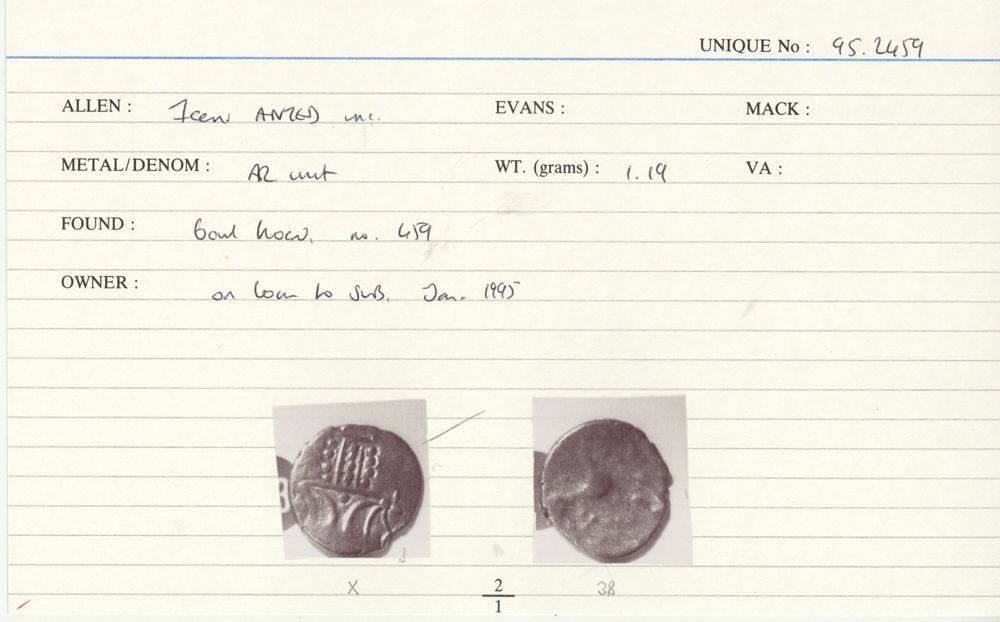 UNIQUE No : 95.2459
ALLEN : Iceni ANTED unc. EVANS : MACK :
METAL/DENOM : AR unit WT. (grams) : 1.19 VA :
FOUND : hoard, no. 459
OWNER : on loan to Jan. 1995
X 2/1 3B